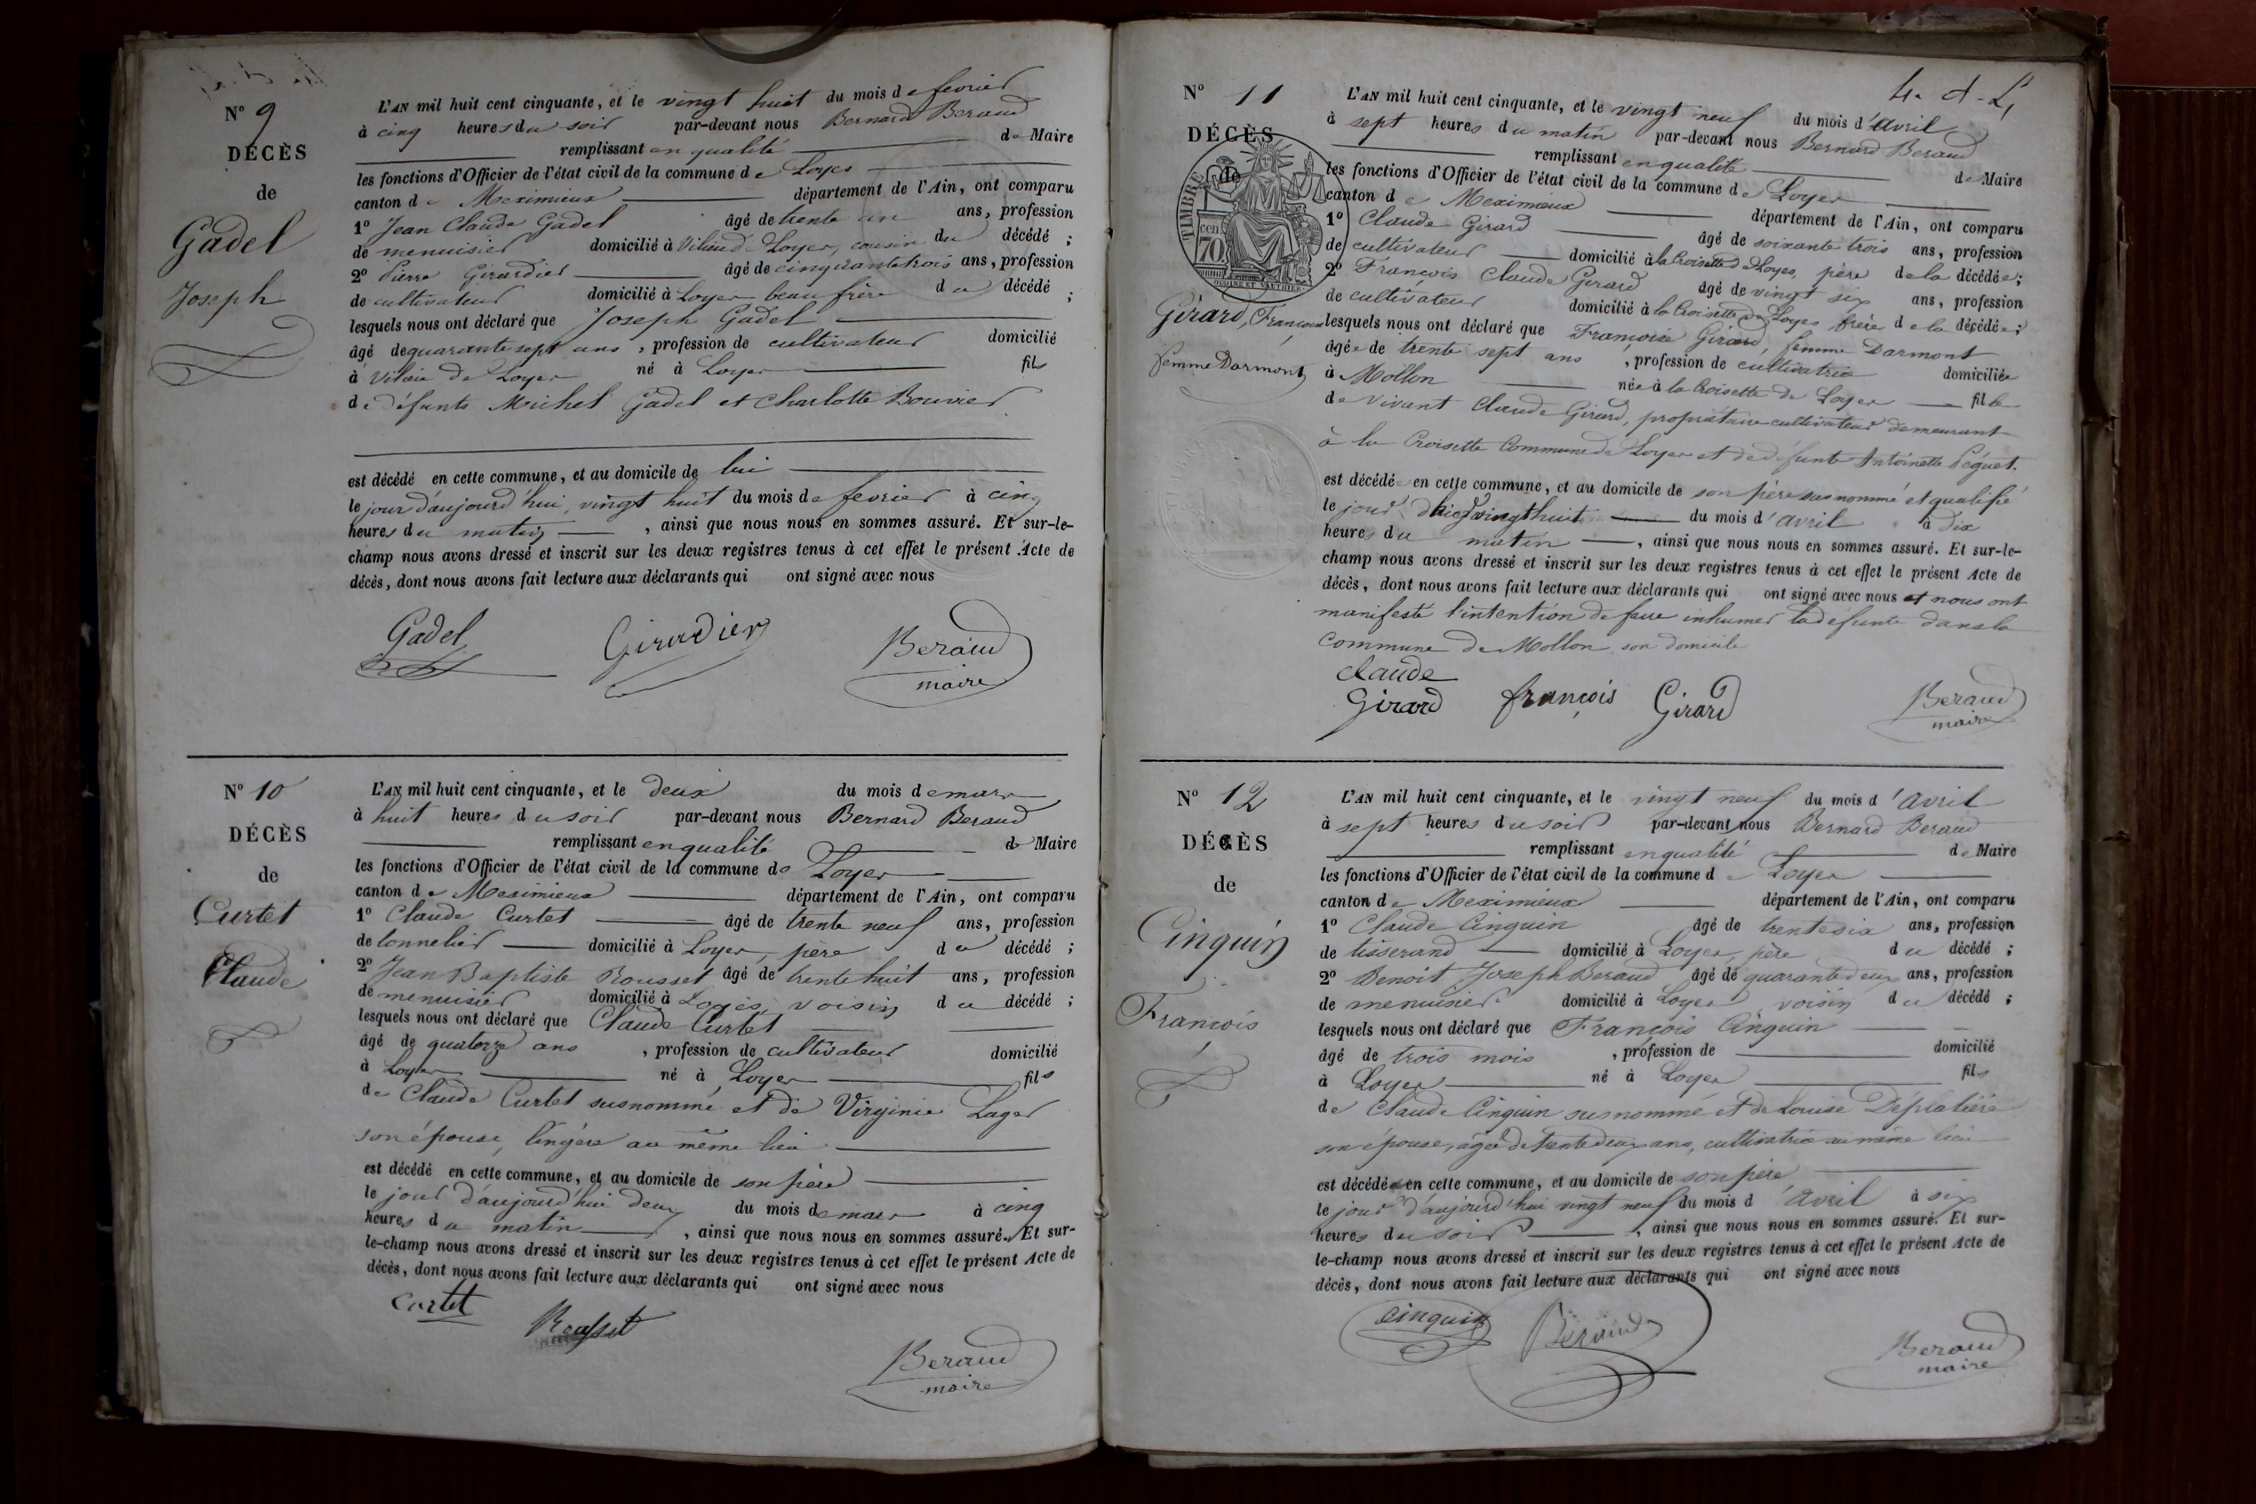 N° 9
DÉCÈS
de
Gadel
Joseph
L'AN mil huit cent cinquante, et le vingt huit du mois de fevrier
à cinq heures du soir par-devant nous Bernard Beraud
remplissant en qualité de Maire
les fonctions d'Officier de l'état civil de la commune de Loyes
canton de Meximieux département de l'Ain, ont comparu
1° Jean Claude Gadel âgé de trente un ans, profession
de menuisier domicilié à Loyes, cousin du décédé ;
2° Pierre Girardier âgé de cinquante trois ans, profession
de cultivateur domicilié à Loyes beau frère du décédé ;
lesquels nous ont déclaré que Joseph Gadel
âgé de quarante sept ans, profession de cultivateur domicilié
à de Loyes né à Loyes fils
de défunts Michel Gadel et Charlotte Bouvier
est décédé en cette commune, et au domicile de lui
le jour d'aujourd'hui, vingt huit du mois de fevrier à cinq
heures du matin, ainsi que nous nous en sommes assuré. Et sur-le-
champ nous avons dressé et inscrit sur les deux registres tenus à cet effet le présent Acte de
décès, dont nous avons fait lecture aux déclarants qui ont signé avec nous
Gadel Girardier Beraud
maire
N° 10
DÉCÈS
de
Curtet
Claude
L'AN mil huit cent cinquante, et le deux du mois de mars
à huit heures du soir par-devant nous Bernard Beraud
remplissant en qualité de Maire
les fonctions d'Officier de l'état civil de la commune de Loyes
canton de Meximieux département de l'Ain, ont comparu
1° Claude Curtet âgé de trente neuf ans, profession
de tonnelier domicilié à Loyes, père du décédé ;
2° Jean Baptiste Rousset âgé de trente huit ans, profession
de menuisier domicilié à Loyes, voisin du décédé ;
lesquels nous ont déclaré que Claude Curtet
âgé de quatorze ans, profession de cultivateur domicilié
à Loyes né à Loyes fils
de Claude Curtet susnommé et de Virginie Lager
son épouse, lingère au même lieu
est décédé en cette commune, et au domicile de son père
le jour d'aujourd'hui deux du mois de mars à cinq
heures du matin, ainsi que nous nous en sommes assuré. Et sur-
le-champ nous avons dressé et inscrit sur les deux registres tenus à cet effet le présent Acte de
décès, dont nous avons fait lecture aux déclarants qui ont signé avec nous
Curtet Rousset Beraud
maire
4. d. L
N° 11
DÉCÈS
de
TIMBRE
70
Girard, Françoise
femme Darmont
L'AN mil huit cent cinquante, et le vingt neuf du mois d'avril
à sept heures du matin par-devant nous Bernard Beraud
remplissant en qualité de Maire
les fonctions d'Officier de l'état civil de la commune de Loyes
canton de Meximieux département de l'Ain, ont comparu
1° Claude Girard âgé de soixante trois ans, profession
de cultivateur domicilié à la Croisette de Loyes, père de la décédée ;
2° François Claude Girard âgé de vingt six ans, profession
de cultivateur domicilié à la Croisette de Loyes frère de la décédée ;
lesquels nous ont déclaré que Françoise Girard, femme Darmont
âgée de trente sept ans, profession de cultivatrice domiciliée
à Mollon née à la Croisette de Loyes fille
de vivant Claude Girard, propriétaire cultivateur demeurant
à la Croisette Commune de Loyes et de défunte Antoinette Péguet.
est décédée en cette commune, et au domicile de son père susnommé et qualifié
le jour d'hier vingt huit du mois d'avril à dix
heures du matin, ainsi que nous nous en sommes assuré. Et sur-le-
champ nous avons dressé et inscrit sur les deux registres tenus à cet effet le présent Acte de
décès, dont nous avons fait lecture aux déclarants qui ont signé avec nous et nous ont
manifesté l'intention de faire inhumer la défunte dans la
Commune de Mollon son domicile
claude
Girard françois Girard Beraud
maire
N° 12
DÉCÈS
de
Cinquin
François
L'AN mil huit cent cinquante, et le vingt neuf du mois d'avril
à sept heures du soir par-devant nous Bernard Beraud
remplissant en qualité de Maire
les fonctions d'Officier de l'état civil de la commune de Loyes
canton de Meximieux département de l'Ain, ont comparu
1° Claude Cinquin âgé de trente six ans, profession
de tisserand domicilié à Loyes, père du décédé ;
2° Benoit Joseph Beraud âgé de quarante deux ans, profession
de menuisier domicilié à Loyes voisin du décédé ;
lesquels nous ont déclaré que François Cinquin
âgé de trois mois, profession de domicilié
à Loyes né à Loyes fils
de Claude Cinquin susnommé et de Louise
son épouse, âgée de trente deux ans, cultivatrice au même lieu
est décédé en cette commune, et au domicile de son père
le jour d'aujourd'hui vingt neuf du mois d'avril à six
heures du soir, ainsi que nous nous en sommes assuré. Et sur-
le-champ nous avons dressé et inscrit sur les deux registres tenus à cet effet le présent Acte de
décès, dont nous avons fait lecture aux déclarants qui ont signé avec nous
Cinquin Béraud Beraud
maire